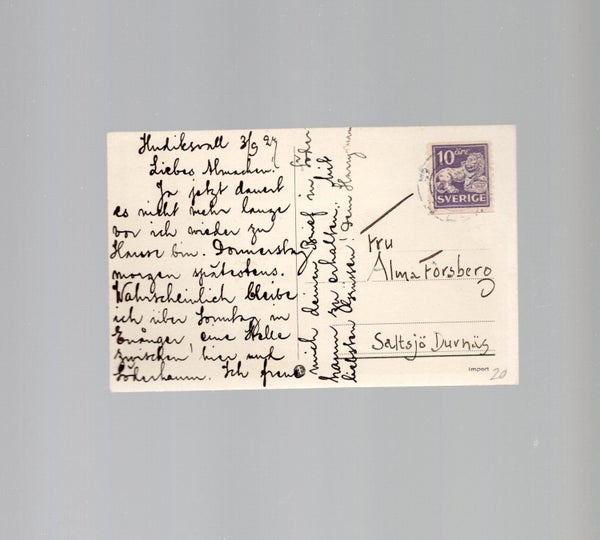 Hudiksvall 3/9 27
Liebes Almachen!
Ja jetzt dauert
es nicht mehr lange
vor ich wieder zu
Hause bin. Donnerstag
morgen spätestens.
Wahrscheinlich bleibe
ich über Sonntag in
Enånger, eine Stelle
zwischen hier und
Söderhamn. Ich freue
mich deinen Brief in Söder
hamn zu erhalten. Mit
liebsten Grüssen! Dein
10 ÖRE
SVERIGE
Fru
Alma Forsberg
Saltsjö Duvnäs
Import
20